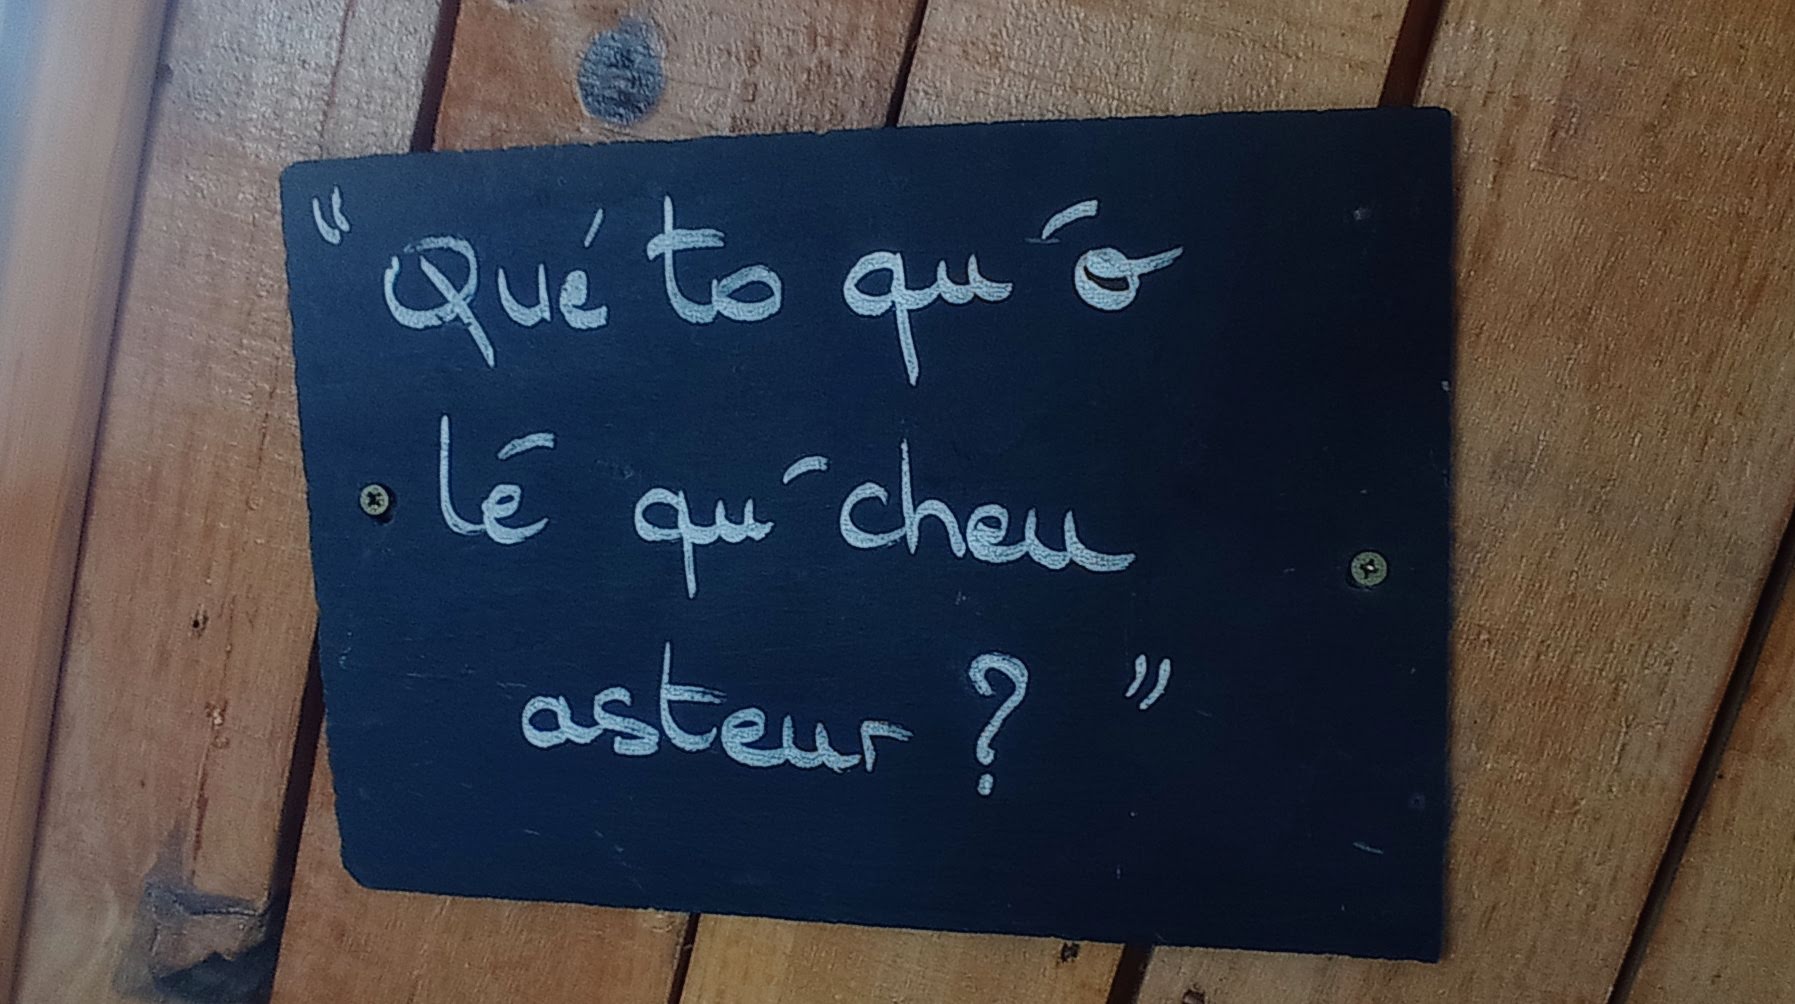 "Qué to qu'o
lé qu'cheu
asteur ?"